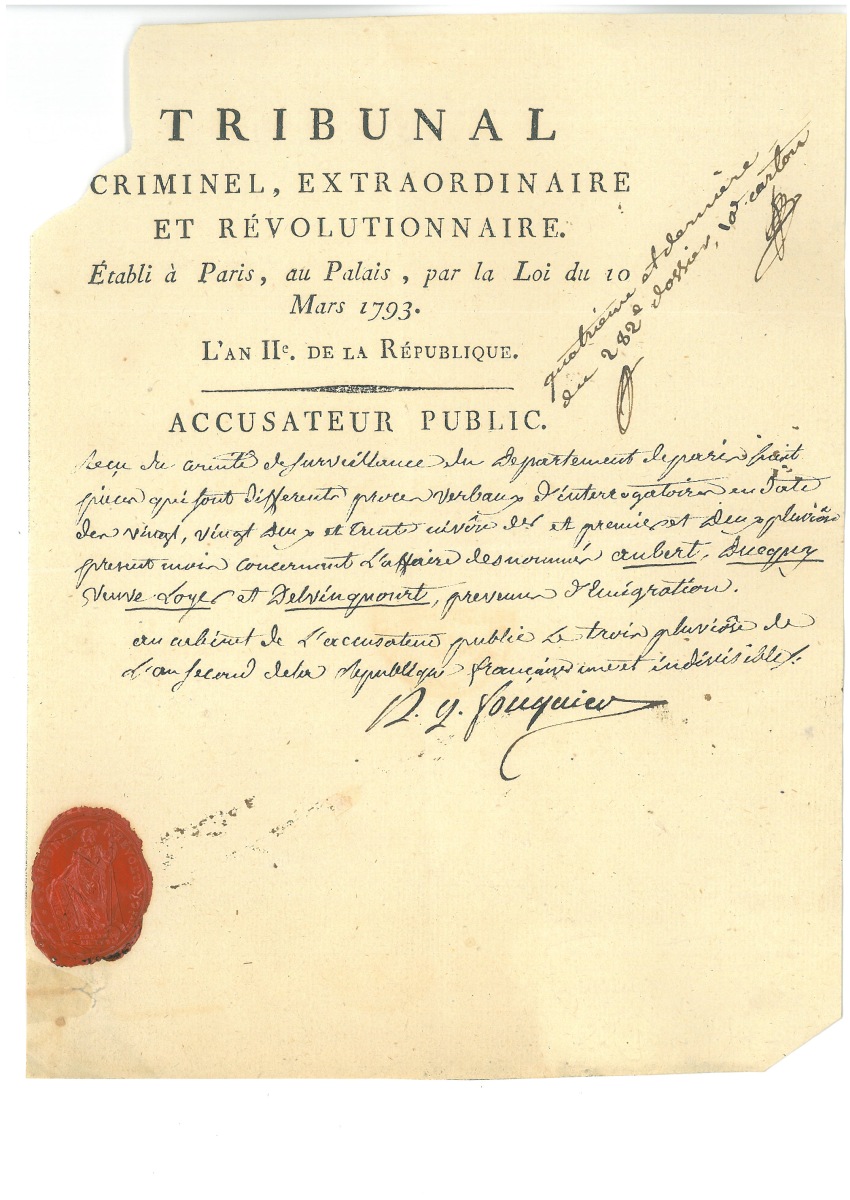 TRIBUNAL
CRIMINEL, EXTRAORDINAIRE
ET RÉVOLUTIONNAIRE.
Établi à Paris, au Palais, par la Loi du 10
Mars 1793.
L'AN IIe. DE LA RÉPUBLIQUE.
quatrieme et derniére
du 282e dossier, 10e. carton
ACCUSATEUR PUBLIC.
Reçu du comité de surveillance du Departement de paris
pieces qui sont differents proces verbaux d'interrogatoires en date
des vingt, vingt deux et trente nivôse et premier et deux pluviôse
present mois concernant l'affaire des nommés aubert, Ducquy
veuve Loyer et Delvincourt, prevenus d'Emigration.
au cabinet de l'accusateur public le trois pluviôse de
l'an second de la republique françaises une et indivisible.
A. q. fouquier